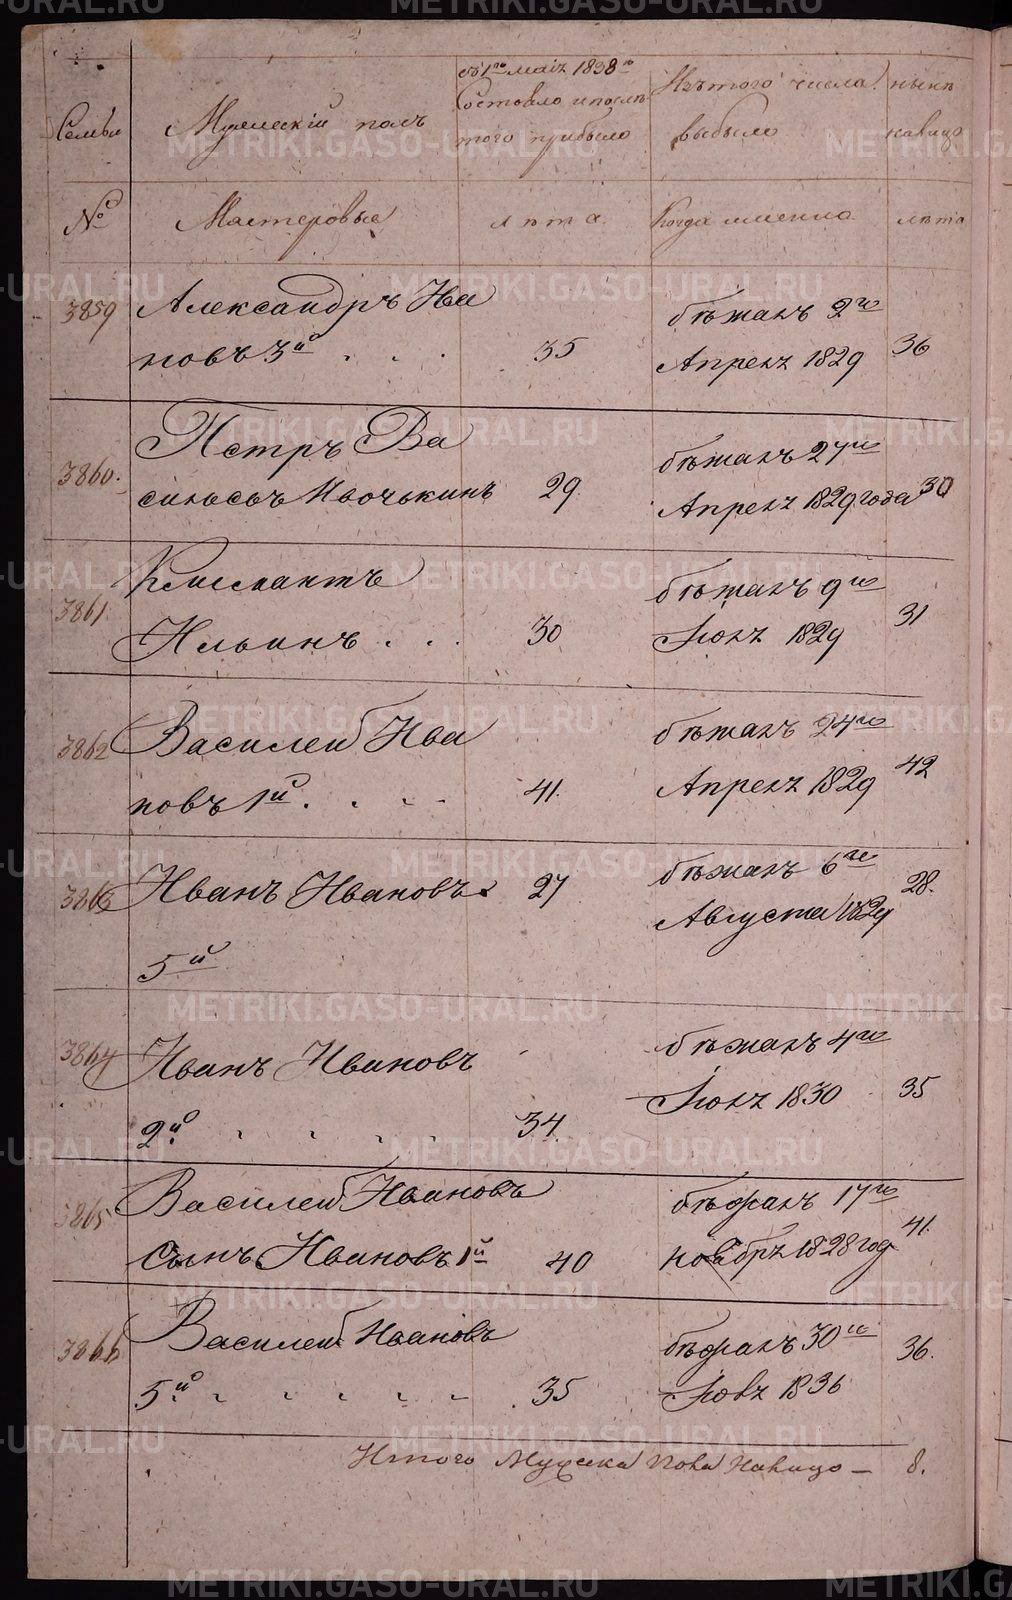 съ 1го маія 1838го
Семьи
Мужескій полъ
Состояло и послѣ
того прибыло
Изъ того числа
выбыло
нынѣ
налицо
№
Мастеровые
лѣта
Когда именно
лѣта
3859
Александръ Ива
новъ 3й
35
бѣжалъ 2го
Апреля 1829
36
3860.
Петръ Ва
сильевъ
29.
бѣжалъ 27го
Апреля 1829 года
30
3861.
Климантъ
Ильинъ . . .
30
бѣжалъ 9го
Іюля 1829
31
3862
Василей Ива
новъ 1й . . . .
41.
бѣжалъ 24го
Апреля 1829
42
3863
Иванъ Ивановъ
5й
27
бѣжалъ 6го
Августа 1829
28.
3864
Иванъ Ивановъ
2й
34.
бѣжалъ 4го
Іюля 1830
35
3865
Василей Ивановъ
сынъ Ивановъ 1й
40
бѣжалъ 17го
ноябрѣ 1828 год
41.
3866
Василей Ивановъ
5й
35
бѣжалъ 30го
1836
36.
Итого Мужска пола налицо — 8.
METRIKI.GASO-URAL.RU